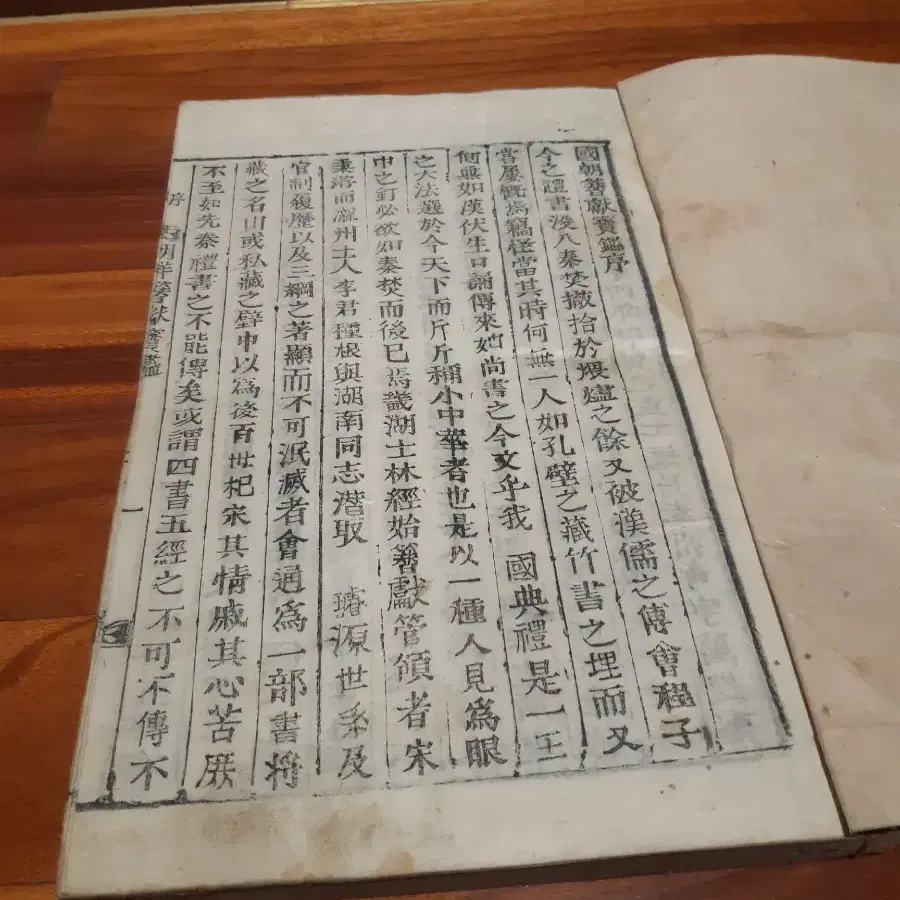 國朝簪獻寶鑑序
今之禮書沒入秦焚掇拾於煨燼之餘又破漢儒之傳會程子
嘗屢慨焉竊怪當其時何無一人如孔壁之藏竹書之埋而又
何無如漢伏生口誦傳來如尚書之今文乎我 國典禮是一王
之大法選於今天下而斤斤稱小中華者也是以一種人見爲眼
中之釘必欲如秦焚而後已焉畿湖士林經始簪獻管領者宋
秉 而 州士人李君種根與湖南同志潛取 璿源世系及
官制履歷以及三綱之著顯而不可泯滅者會通爲一部書將
藏之名山或私藏之壁中以爲後百世杞宋其情慽其心苦厥
不至如先秦禮書之不能傳矣或謂四書五經之不可不傳不
序
簪獻寶鑑
一